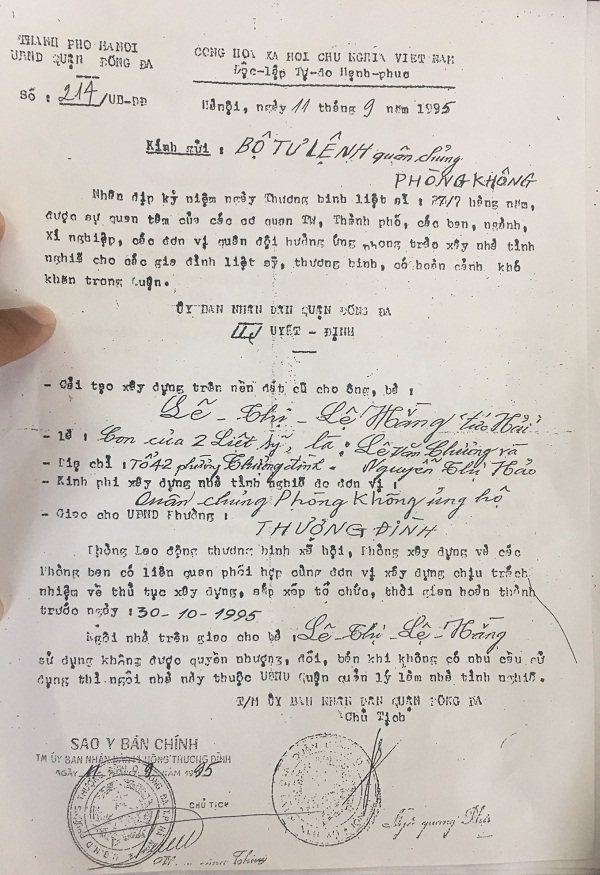 THÀNH PHO HANOI
UBND QUẬN ĐỐNG ĐA
Số : 214/UB-DD
CONG HOA XA HOI CHU NGHIA VIET NAM
Độc-lập Tự-do Hạnh-phuc
Hànội, ngày 11 tháng 9 năm 1995
Kính gửi : BỘ TƯ LỆNH quân chủng
PHÒNG KHÔNG
Nhân dịp kỷ niệm ngày Thương binh liệt sĩ : 27/7 hàng năm,
được sự quan tâm của các cơ quan TW, Thành phố, các ban, ngành,
Xí nghiệp, các đơn vị quân đội hưởng ứng phong trào xây nhà tình
nghiã cho các gia đình liệt sỹ, thương binh, có hoàn cảnh khó
khăn trong Quận.
ỦY BAN NHÂN DÂN QUẬN ĐỐNG ĐA
QUYẾT - ĐỊNH
- Cải tạo xây dựng trên nền đất cũ cho ông, bà :
Lê - Thị - Lệ Hằng tức Hải
- Là : Con của 2 Liệt sỹ, là : Lê Văn Chưởng và
- Địa chỉ : Tổ 42 phường Thượng đình - Nguyễn Thị Hảo
- Kinh phí xây dựng nhà tình nghiã do đơn vị :
Quân chủng Phòng Không ủng hộ
- Giao cho UBND Phường :
THƯỢNG ĐÌNH
Phòng Lao động thương binh xã hội, Phòng xây dựng và các
Phòng ban có liên quan phối hợp cùng đơn vị xây dựng chịu trách
nhiệm về thủ tục xây dựng, sắp xếp tổ chức, thời gian hoàn thành
trước ngày : 30-10-1995
Ngôi nhà trên giao cho bà : Lê-Thị-Lệ-Hằng
sử dụng không được quyền nhượng, đổi, bán khi không có nhu cầu sử
dụng thì ngôi nhà này thuộc UBND Quận quản lý làm nhà tình nghiã.
T/M ỦY BAN NHÂN DÂN QUẬN ĐỐNG ĐA
Chủ Tịch
SAO Y BẢN CHÍNH
TM ỦY BAN NHÂN DÂN PHƯỜNG THƯỢNG ĐÌNH
NGÀY 11 9 NĂM 1995
CHỦ TỊCH